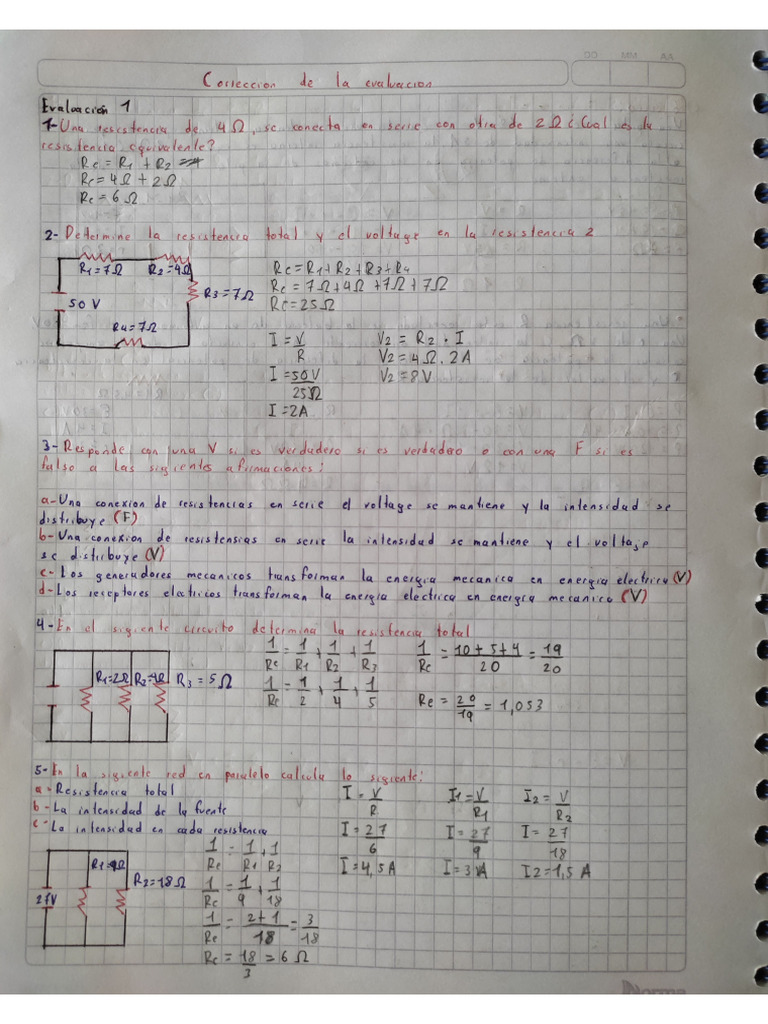 AA MM DD
Correccion de la evaluacion
Evaluación 1
1- Una resistencia de 4Ω, se conecta en serie con otra de 2Ω ¿Cual es la
resistencia equivalente?
Re = R1 + R2
Re = 4Ω + 2Ω
Re = 6 Ω
2- Determine la resistencia total y el voltage en la resistencia 2
R1=7Ω R2=4Ω
R3=7Ω
50 V
R4=7Ω
Re = R1 + R2 + R3 + R4
Re = 7Ω + 4Ω + 7Ω + 7Ω
Re = 25Ω
I = V/R
I = 50V/25Ω
I = 2A
V2 = R2 · I
V2 = 4Ω . 2A
V2 = 8V
3- Responde con una V si es verdadero si es verdadero o con una F si es
falso a las sigientes afirmaciones:
a- Una conexion de resistencias en serie el voltage se mantiene y la intensidad se
distribuye (F)
b- Una conexion de resistensias en serie la intensidad se mantiene y el voltaje
se distribuye (V)
c- Los generadores mecanicos transforman la energia mecanica en energia electrica (V)
d- Los reseptores electricos transforman la energia electrica en energia mecanica (V)
4- En el sigiente circuito determina la resistencia total
R1=2Ω R2=4Ω R3 = 5Ω
1/Re = 1/R1 + 1/R2 + 1/R3
1/Re = 1/2 + 1/4 + 1/5
1/Re = 10+5+4/20 = 19/20
Re = 20/19 = 1,053
5- En la sigiente red en paralelo calcula lo sigiente:
a- Resistencia total
b- La intensidad de la fuente
c- La intensidad en cada resistencia
R1=9Ω
R2=18Ω
27V
1/Re = 1/R1 + 1/R2
1/Re = 1/9 + 1/18
1/Re = 2+1/18 = 3/18
Re = 18/3 = 6 Ω
I = V/R
I = 27/6
I = 4,5 A
I1 = V/R1
I = 27/9
I = 3 A
I2 = V/R2
I = 27/18
I2 = 1,5 A
Norma